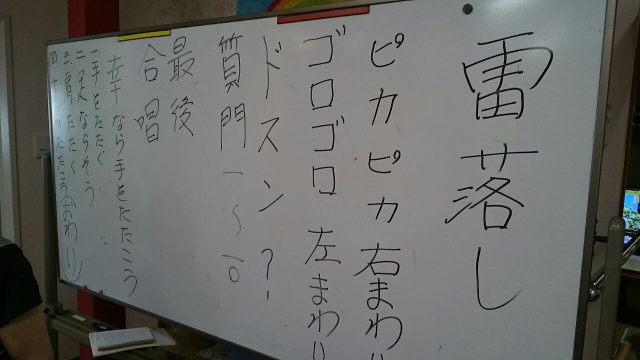 雷落し
ピカピカ 右まわり
ゴロゴロ 左まわり
ドスン?
質問 一~十
最後
合唱
幸せなら手をたたこう
一 手をたたく
二 足ならそう
三 肩たたく
四